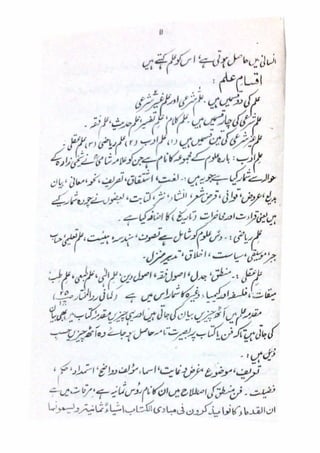 ۱۱
انسانی میں حاصل ہوتی ہے، اس کو علم کہتے ہیں
اقسامِ علم :
علم کی دو قسمیں ہیں : علم شرعی اور علم غیر شرعی
علم شرعی کی چار قسمیں ہیں: علم کلام، علم تفسیر، علم حدیث، علم فقہ۔
علم غیر شرعی کی تین قسمیں ہیں (۱) علم ادب (۲) علم ریاضی (۳) علم عقلی
علم ادب : بارہ علوم کے مجموعہ کا نام ہے جن کو علامہ شامی نے شیخی زادہ کے
حوالہ سے شمار کیا ہے جو یہ ہیں : لغت، اشتقاق، تصریف، نحو، معانی، بیان
بدیع، عروض، قوافی، قرض شعر، انشاء نثر، کتابت، بعضوں نے چودہ شمار کیے
ہیں یعنی قرارت اور محاضرات (تاریخ) کا اضافہ کیا ہے۔
علم ریاضی : دس علوم کو شامل ہے تصوف، ہندسہ، ہیئت، علم تعلیمی، حساب
جبر، موسیقی، سیاست، اخلاق، تدبیر منزل
علم عقلی : منطق، جدل، اصول فقہ، اصول دین، علم الٰہی، علم طبعی، علم طب
میقات، فلسفہ اور کیمیا، وغیرہ کا شمار اس میں ہے (کمافی ردالمختار
مقدمہ علم میں آٹھ چیزیں بیان کی جاتی ہیں اور یہی چیزیں مقدمہ کتاب میں بھی بیان
کی جاتی ہیں تاکہ فن یا کتاب پر بصیرت تامہ حاصل ہو جائے وہ آٹھ چیزیں حسب
ذیل ہیں :
تعریف، موضوع، غرض و غایت، اسماء، مؤلف وواضع، استمداد، حکم،
فضیلت۔ فن منطق کی اصطلاح میں ان کا نام رؤس ثمانیہ ہے، مرقات میں ہے
ان القدماء کانوا یذکرون فی مبادی الکتاب اشیاء ثمانیة ویسمونها